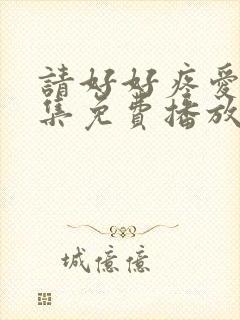 請好好疼愛
集免費播放
城億億